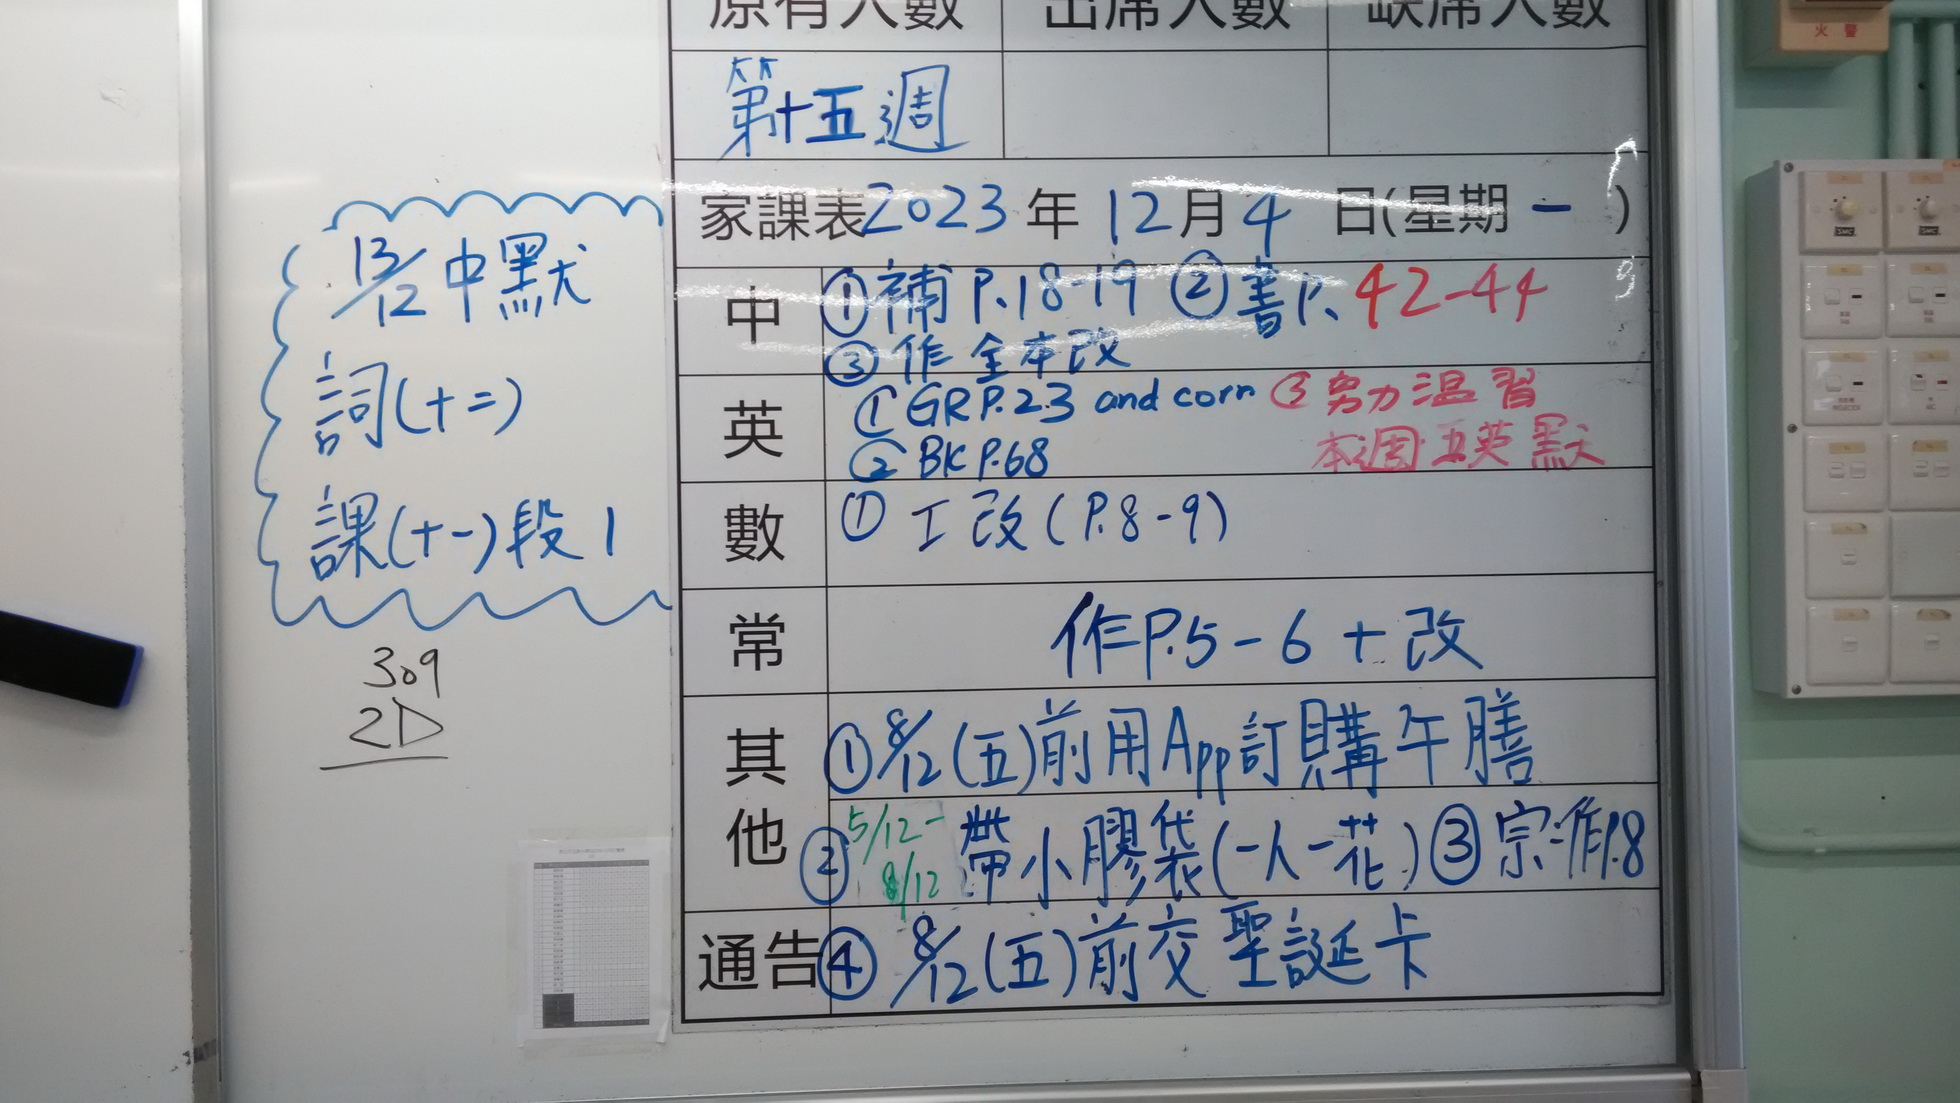 原有人數 出席人數 缺席人數
第十五週
家課表2023年12月4日(星期一)
中 ①補 P.18-19 ②書P. 42-44
③作 全本改
英 ① GR P.23 and corn ③努力溫習
② BK P.68 本週五英默
數 ① 工改(P.8-9)
常 作P.5-6+改
其他 ①8/12(五)前用App訂購午膳
②5/12-8/12 帶小膠袋(一人一花)③宗:作P.8
通告 ④ 8/12(五)前交聖誕卡
13/12 中默
詞(十二)
課(十一)段1
309
2D
火警